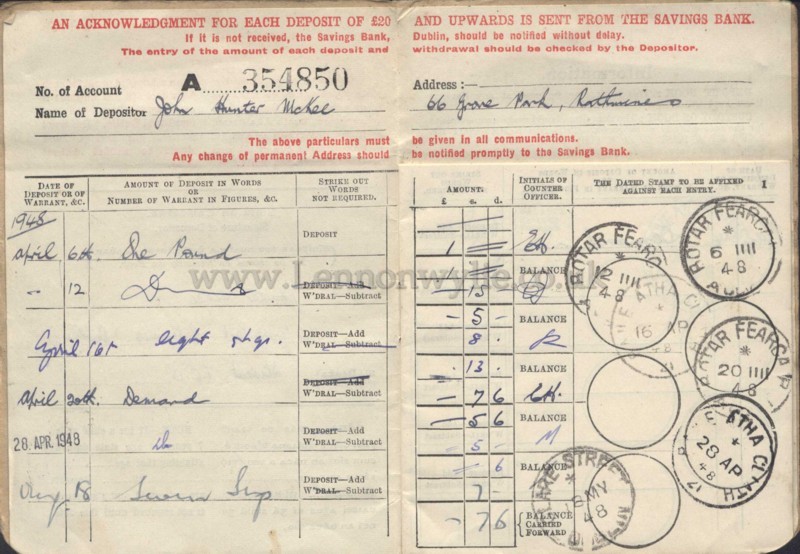 AN ACKNOWLEDGMENT FOR EACH DEPOSIT OF £20 AND UPWARDS IS SENT FROM THE SAVINGS BANK.
If it is not received, the Savings Bank, Dublin, should be notified without delay.
The entry of the amount of each deposit and withdrawal should be checked by the Depositor.
No. of Account A 354850 Address:—
Name of Depositor John Hunter McKee 66 Grove Park, Rathmines
The above particulars must be given in all communications.
Any change of permanent Address should be notified promptly to the Savings Bank.
DATE OF DEPOSIT OR OF WARRANT, &C. AMOUNT OF DEPOSIT IN WORDS OR NUMBER OF WARRANT IN FIGURES, &C. STRIKE OUT WORDS NOT REQUIRED. AMOUNT. INITIALS OF COUNTER OFFICER. THE DATED STAMP TO BE AFFIXED AGAINST EACH ENTRY. 1
£ s. d.
1948
April 6th One Pound DEPOSIT 1
BALANCE
" 12 DEPOSIT—Add W'DRAL—Subtract 15
- 5 - BALANCE
April 16th Eight shgs. DEPOSIT—Add W'DRAL—Subtract 8
- 13 - BALANCE
April 20th Demand DEPOSIT—Add W'DRAL—Subtract - 7 6 EH.
- 5 6 BALANCE
28 APR. 1948 do DEPOSIT—Add W'DRAL—Subtract - 5 -
- 6 BALANCE
18 Seven DEPOSIT—Add W'DRAL—Subtract 7 -
- 7 6 BALANCE CARRIED FORWARD
ROTAR FEARCAIR
6 IIII
48
ROTAR FEARCAIR
12 IIII
48
ATHA CLIATH
16 AP
48
ROTAR FEARCAIR
20 IIII
48
ATHA CLIATH
28 AP
48
17
CLARE STREET
18 MY
48
www.Lennonwylie.co.uk